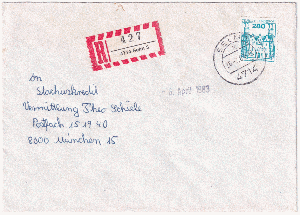 R 427
280
6. April 1983
An
Stachuskredit
Vermittlung Theo Schiele
Postfach 15 19 40
8000 München 15